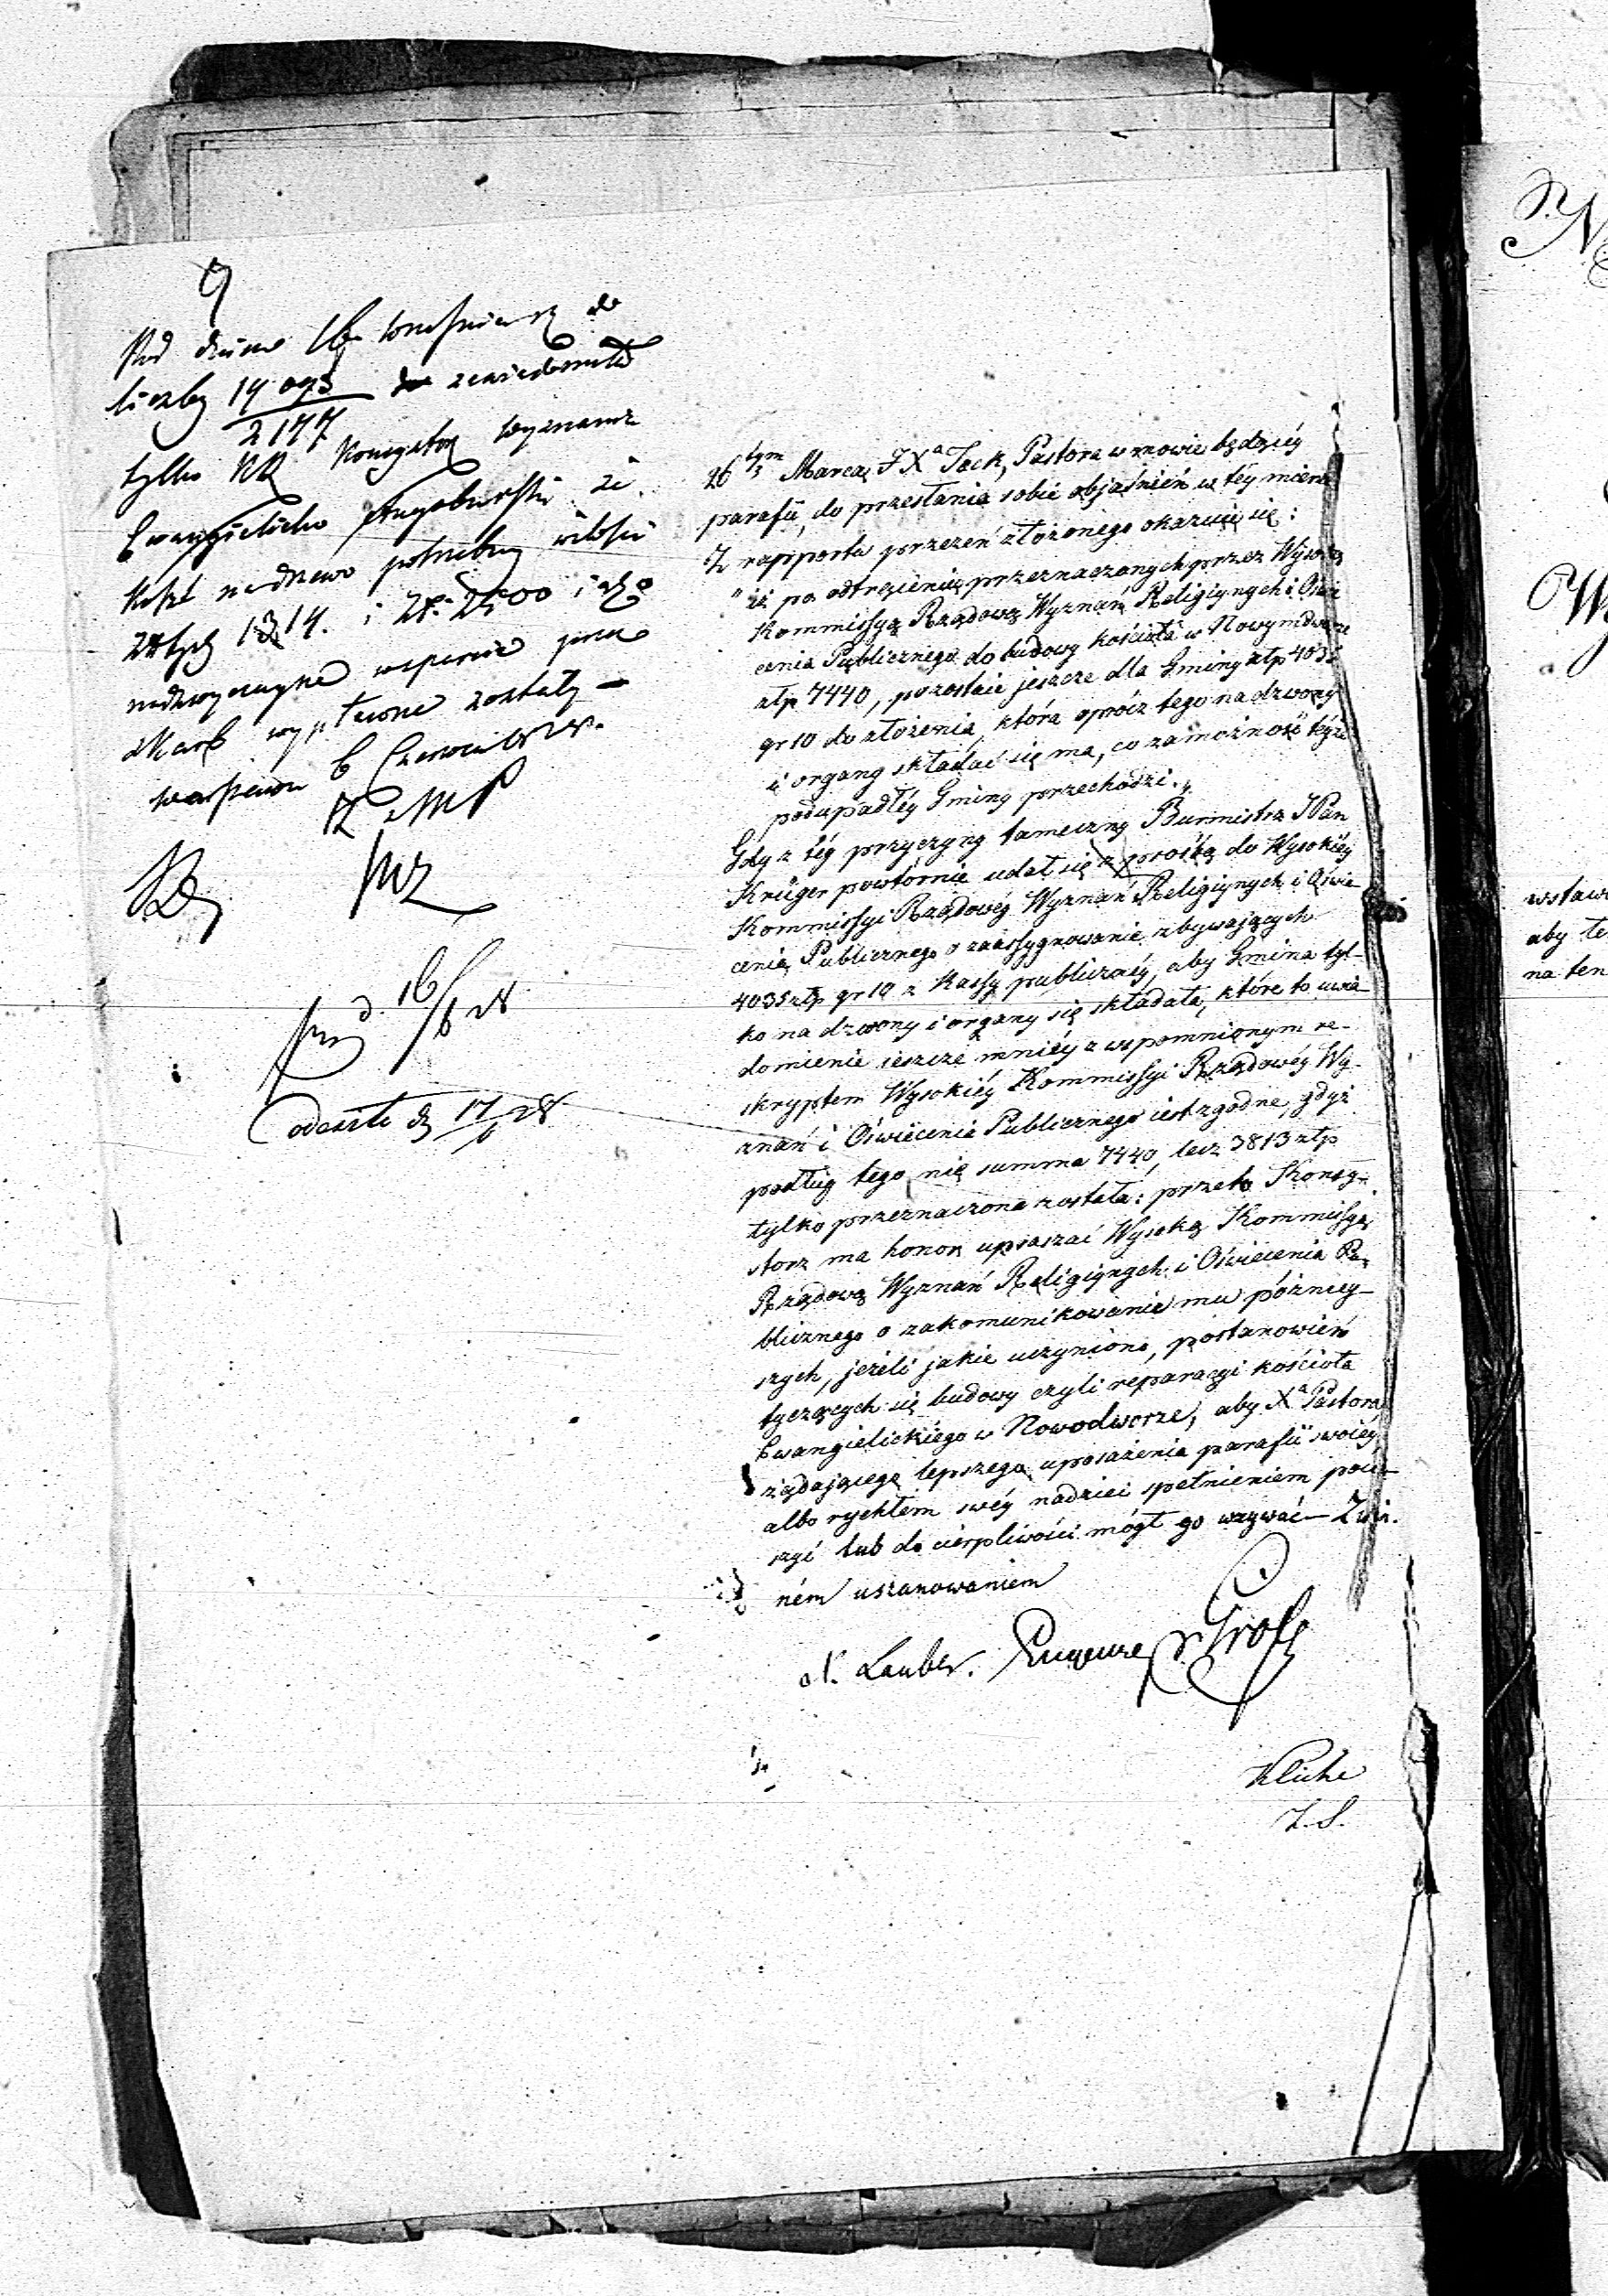 9
Pod dniem 16 Września rz do
liczby 14093/2177 zawiadomiła
tylko KR Konsystorz Wyznania
Ewangielicko Augsburskie że
Koszt na drzewo potrzebny w ilości
złotych 1314. i Zł. 2500 jako
nadzwyczayne wsparcie przez
skarb wypłacone zostały –
Warszawa 6 Czerwca 1828.
16/6 28
odeszło d 17/6 28
26 tym Marca J Xa Tack, Pastora w mowie będącéy
parafii, do przesłania sobie objaśnień w téy mierze
Z rapportu przezeń złożonego okazuie się:
"że po odtrącenieu przeznaczonych przez Wysoką
Kommissyą Rządową Wyznań Religiynych i Oświe
cenia Publicznego do budowy kościoła w Nowymdworze
złp 7440, pozostaie jeszcze dla Gminy złp 4035
gr 10 do złożenia, która oprócz tego na dzwony
i organy składać się ma, co zamożność téyże
podupadłéy Gminy przechodzi."
Gdy z téy przyczyny tameczny Burmistrz JPan
Krüger powtórnie udał się z prośbą do Wysokiéy
Kommissyi Rządowéy Wyznań Religiynych i Oświe
cenia Publicznego o zaassygnowanie zbywających
4035 złp gr 10 z Kassy publicznéy, aby Gmina tyl–
ko na dzwony i organy się składała, które to uwia–
domienie ieszcze mniéy z wspomnionym re–
skryptem Wysokiéy Kommissyi Rządowéy Wy–
znań i Oświecenia Publicznego iest zgodne, gdyż
podług tego nie summa 7440, lecz 3813 złp
tylko przeznaczona została: przeto Konsy–
storz ma honor upraszać Wysoką Kommissyą
Rządową Wyznań Religiynych i Oświecenia Pu–
blicznego o zakomunikowanie mu późniey–
szych, jeżeli jakie uczyniono, postanowień
tyczących się budowy czyli reparacyi kościoła
Ewangielickiego w Nowodworze, aby Xa Pastora
żądającego lepszego uposażenia parafii swoiéy
albo rychłem swéy nadziei spełnieniem pocie–
szyć lub do cierpliwości mógł go wzywać – Z win.
ném uszanowaniem
Lauber.
Kliche
wstaw
aby te
na ten